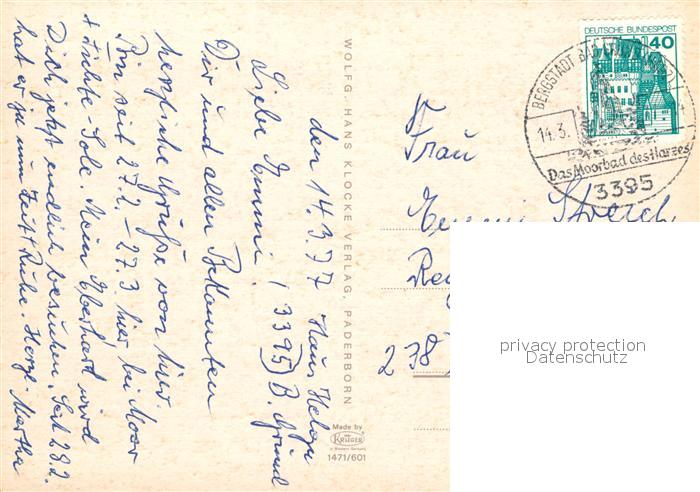 den 14.3.77 Haus Helga
(3395) B. Grund
Liebe Emmi!
Dir und allen Bekannten
herzliche Grüße von hier.
Bin seit 27.2. – 27.3 hier bei Moor
+ Fichte-Sole. Mein Eberhard wird
Dich jetzt endlich besuchen. Seit 28.2.
hat er ja nun Zeit + Ruhe. Herzl. Martha
WOLFG. HANS KLOCKE VERLAG, PADERBORN
Made by
KRÜGER
1471/601
DEUTSCHE BUNDESPOST
40
BERGSTADT BAD
14.3.
Das Moorbad des Harzes
3395
Frau
Emmi
278
privacy protection
Datenschutz